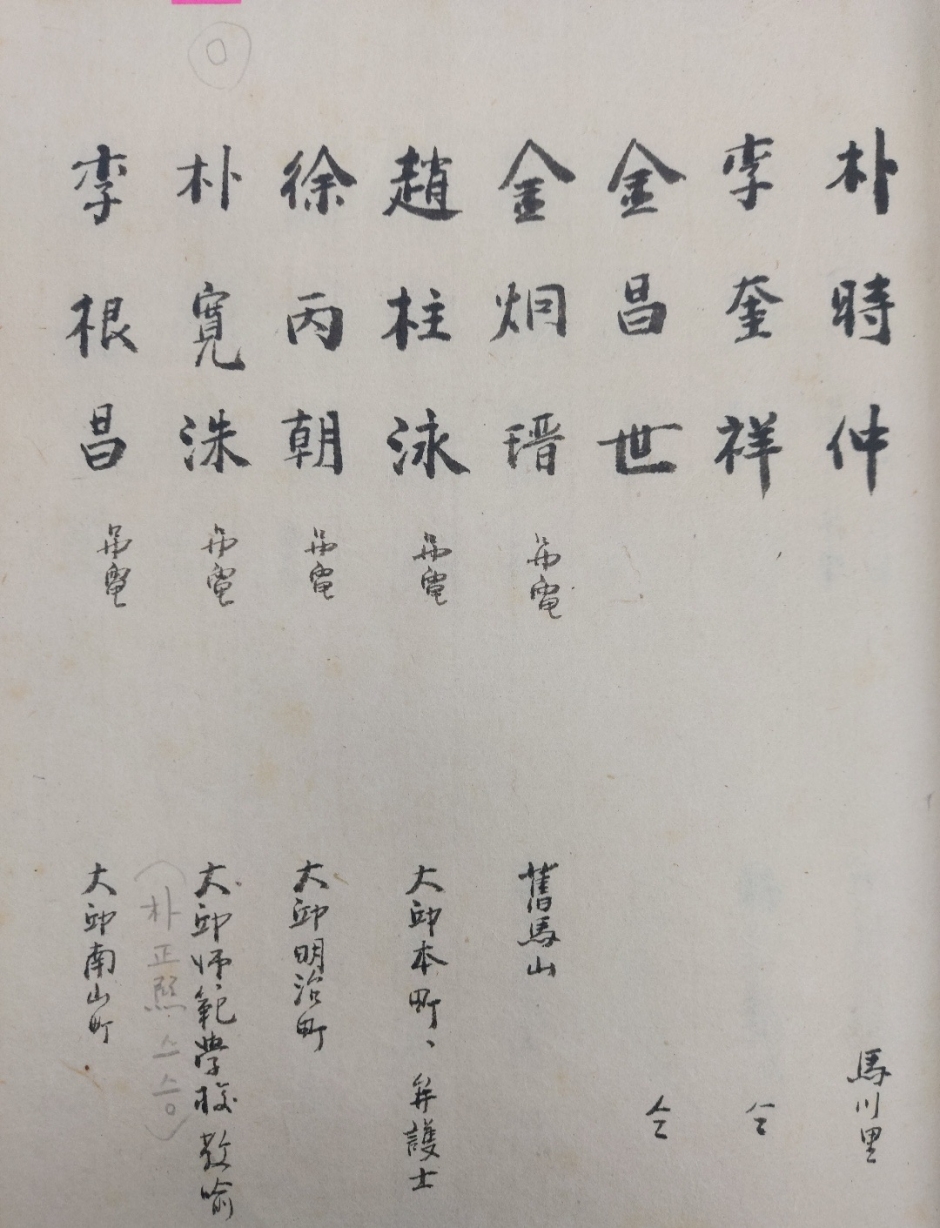 朴時仲 馬川里
李奎祥 仝
金昌世 仝
金炯瑨 弔電 舊馬山
趙柱泳 弔電 大邱本町、弁護士
徐丙朝 弔電 大邱明治町
朴寬洙 弔電 大邱師範學校教喩
(朴正熙 스승)
李根昌 弔電 大邱南山町